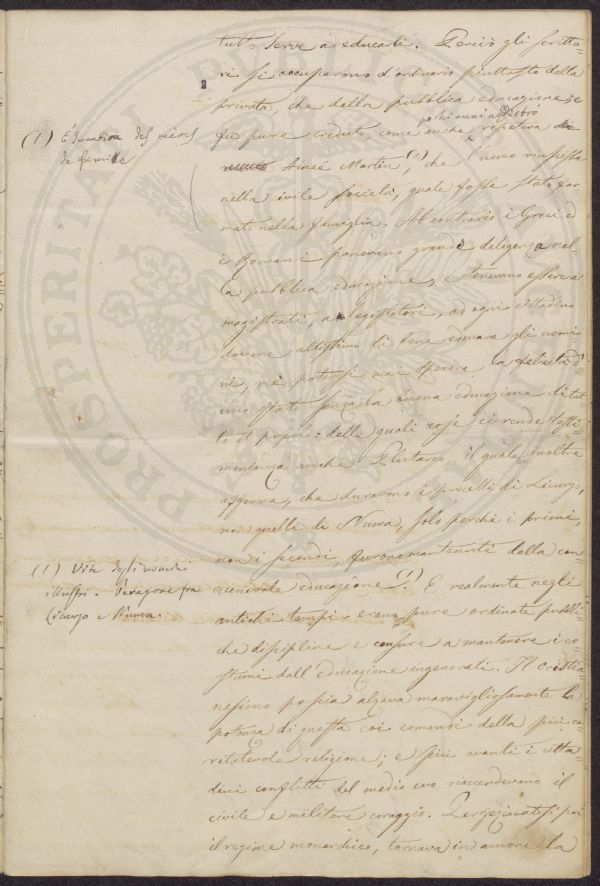 tutto serve ad educarli. Perciò gli scritto-
ri si occuparono d'ordinario piuttosto della
privata, che della pubblica educazione; e
pochi anni addietro
fu pure creduto, come anche ripeteva
Aimé Martin (1), che l'uomo riuscisse
nella civile società, quale fosse stato for-
mato nella famiglia. Al contrario i Greci ed
i Romani ponevano grande diligenza nel-
la pubblica educazione, e tenevano essere a
magistrati, a legislatori, ad ogni cittadino
dovere altissimo di bene educare gli uomi-
ni, nè potersi mai sperare la felicità d'
uno stato senza la buona educazione di tut-
to il popolo: delle quali cose ci rende testi-
monianza anche Plutarco, il quale inoltre
afferma, che durarono i precetti di Licurgo,
non quelli di Numa, solo perchè i primi,
non i secondi, furono mantenuti dalla con-
venevole educazione (1). E realmente negli
antichi tempi erano pure ordinate pubbli-
che discipline e censure a mantenere i co-
stumi dall'educazione ingenerati. Il cristia-
nesimo poscia alzava maravigliosamente la
potenza di questa coi comandi della più ca-
ritatevole religione; e più avanti i citta-
dini conflitti del medio evo riaccendevano il
civile e militare coraggio. Perfezionatosi poi
il regime monarchico, tornava in amore la
(1) Éducation des mères
de famille
(1) Vite degli uomini
illustri. Paragone fra
Licurgo e Numa.
PROSPERITATI PUBLICAE